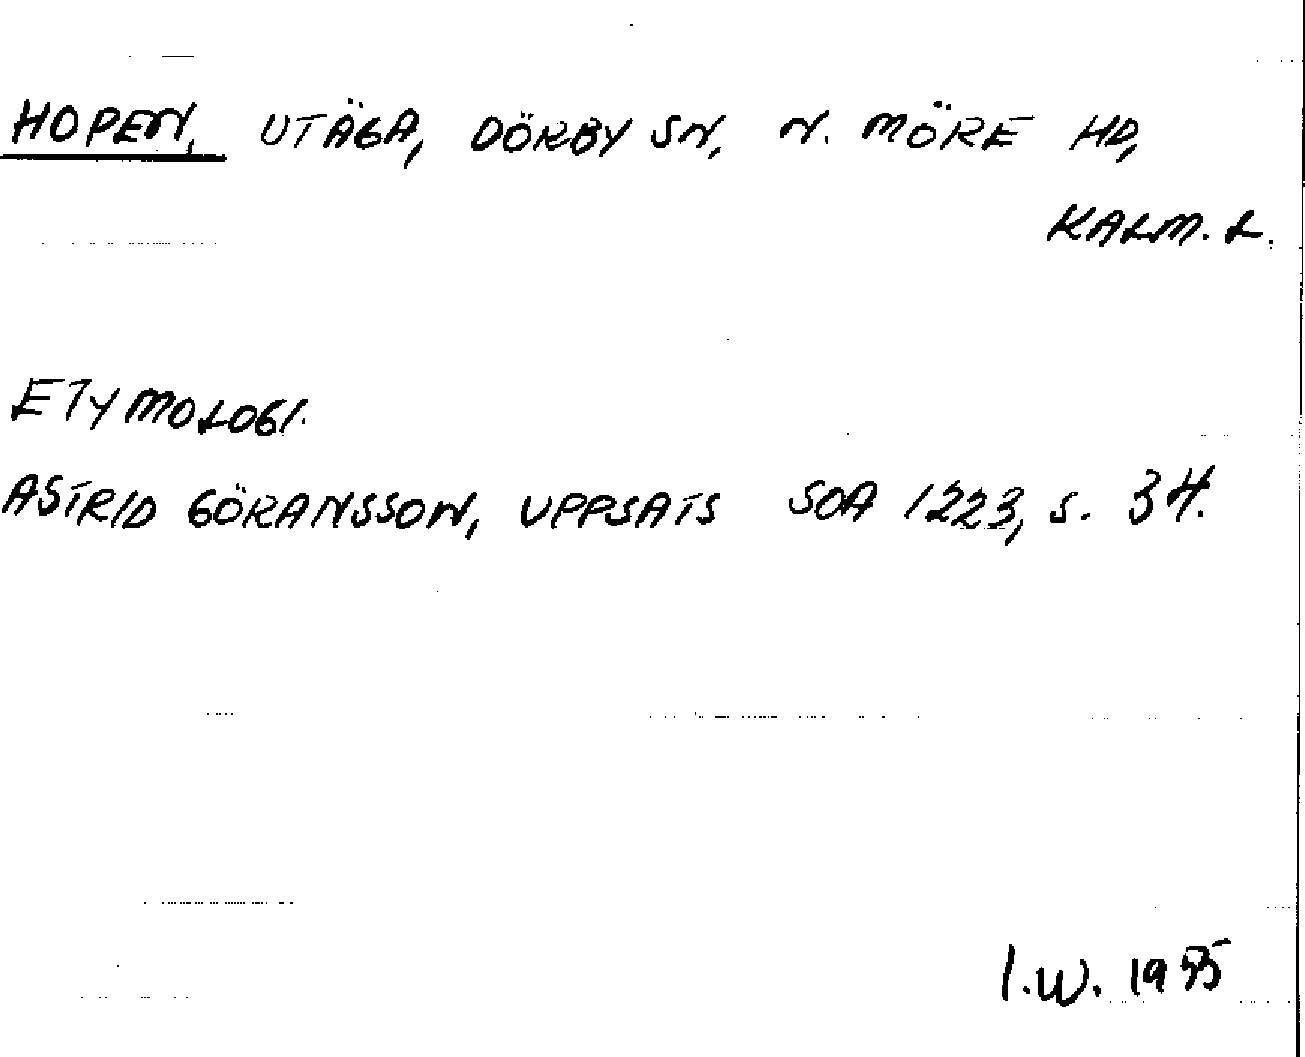 HOPEN, UTÄGA, DÖRBY SN, N. MÖRE HD,
KALM. L.
ETYMOLOGI.
ASTRID GÖRANSSON, UPPSATS SOA 1223, s. 34.
I.W. 1955